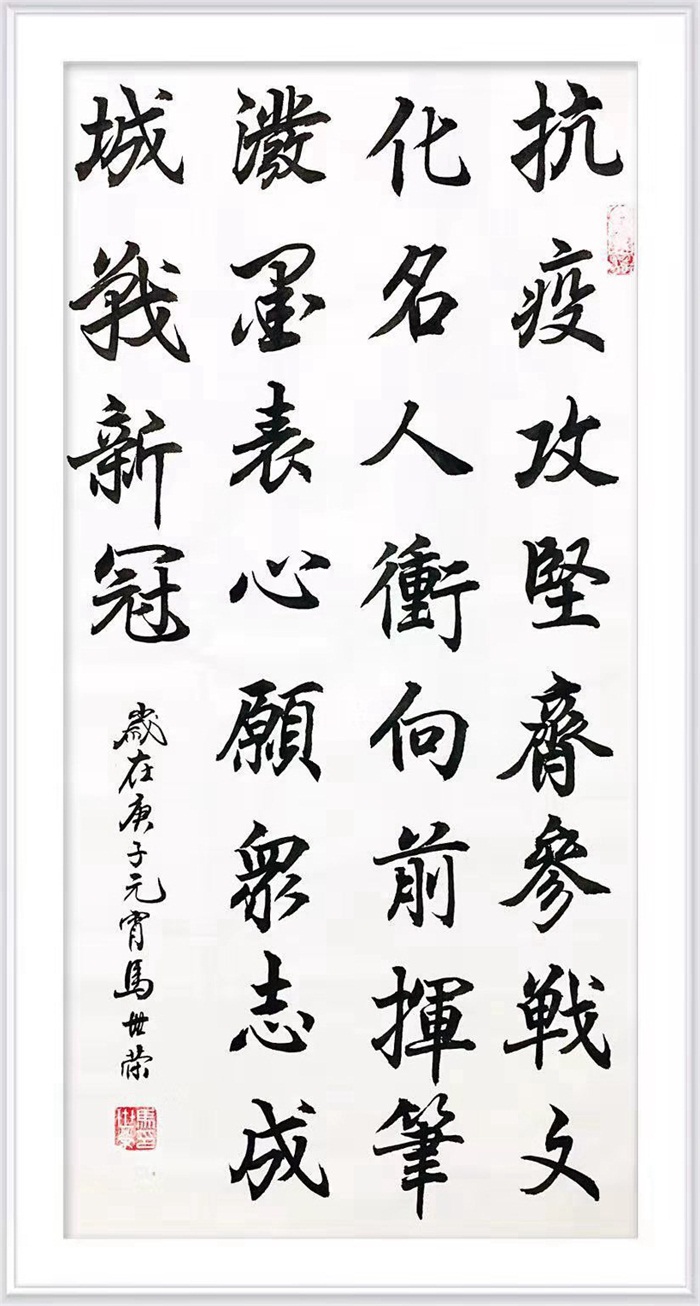 抗疫攻堅齊參戰文
化名人衝向前揮筆
潑墨表心願衆志成
城戰新冠
歲在庚子元宵馬世榮